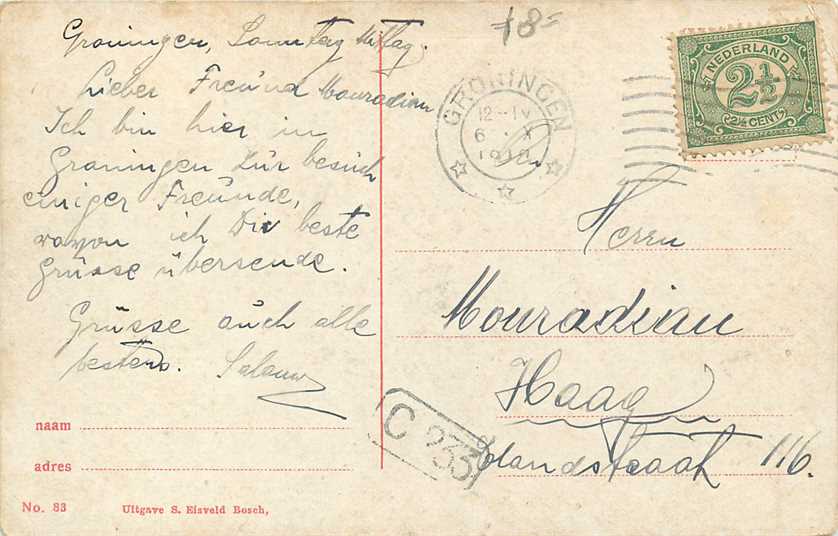 Groningen, Sonntag Mittag.
Lieber Freund Mouradian
Ich bin hier in
Groningen zur besuch
einiger Freunde,
wovon ich Dir beste
Grüsse übersende.
Grüsse auch alle
bestens.
naam
adres
No. 83 Uitgave S. Eisveld Bosch,
GRONINGEN
12-IV
6 X
NEDERLAND
2½
2½ CENT
Herrn
Mouradian
Haag
116.
C 233